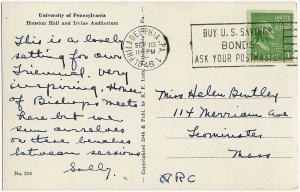 University of Pennsylvania
Houston Hall and Irvine Auditorium
This is a lovely
setting for our
Triennial. very
inspiring. House
of Bishops meets
here but we
sun ourselves
on these benches
between sessions
Sally.
No. 210
PHILADELPHIA, PA.
SEP 13
PM
1946
BUY U.S. SAVINGS
BONDS
ASK YOUR POSTMASTER
Miss Helen Bentley
114 Merriam Ave
Leominster
Mass